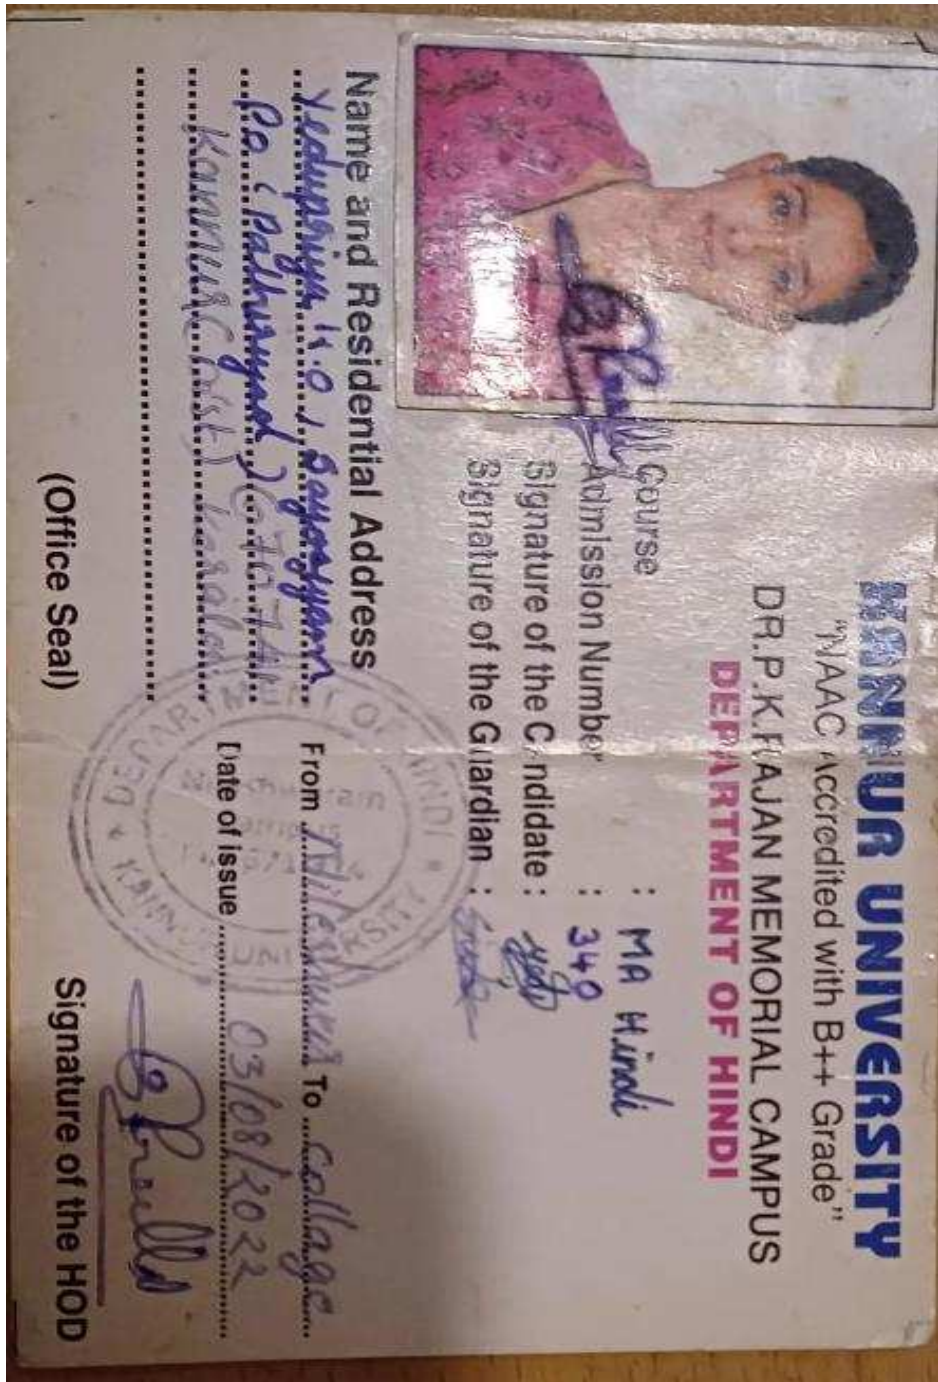 KANNUR UNIVERSITY
"NAAC Accredited with B++ Grade"
DR.P.K.RAJAN MEMORIAL CAMPUS
DEPARTMENT OF HINDI
Course : MA Hindi
Admission Number : 340
Signature of the Candidate :
Signature of the Guardian :
Name and Residential Address
Yedupriya
Kannur (Dist) Kerala
From To Collage
Date of issue 03/08/2022
DEPARTMENT OF HINDI
KANNUR UNIVERSITY
(Office Seal)
Signature of the HOD